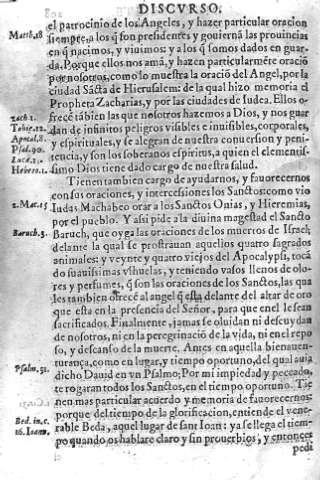 DISCVRSO.
el patrocinio de los Angeles, y hazer particular oracion
Matth. 18 siempre, a los q̃ son presidentes y gouiernã las prouincias
en q̃ nacimos, y viuimos: y a los q̃ somos dados en guar-
da. Porque ellos nos amã, y hazen particularmẽte oraciõ
por nosotros, como lo muestra la oraciõ del Angel, por la
ciudad Sãcta de Hierusalem: de la qual hizo memoria el
Propheta Zacharias, y por las ciudades de Iudea. Ellos o-
Zach. 1. frecẽ tãbien las que nosotros hazemos a Dios, y nos guar
Tobie. 12. dan de infinitos peligros visibles e inuisibles, corporales,
Apocal. 8 y espirituales, y se alegran de nuestra conuersion y peni-
Psal. 90. tencia, y son los soberanos espiritus, a quien el clementis-
Hebreo. 1. simo Dios tiene dado cargo de nuestra salud.
Tienen tambien cargo de ayudarnos, y fauorecernos
con sus oraciones, y intercessiones los Sanctos: como vio
2. Mac. 15 Iudas Machabeo orar a los Sanctos Onias, y Hieremias,
por el pueblo. Y assi pide a la diuina magestad el Sancto
Baruch. 3. Baruch, que oyga las oraciones de los muertos de Israel;
delante la qual se prostrauan aquellos quatro sagrados
animales: y veynte y quatro viejos del Apocalypsi, tocã
do suauissimas vihuelas, y teniendo vasos llenos de olo-
res y perfumes, q̃ son las oraciones de los Sanctos, las qua
les tambien ofrece al angel q̃ està delante del altar de oro
que esta en la presencia del Señor, para que en el le sean
sacrificados. Finalmente, jamas se oluidan ni descuydan
de nosotros, ni en la peregrinacion de la vida, ni en el repo
so, y descanso de la muerte. Antes en aquella bienauen-
turança, como en lugar, y tiempo oportuno, del qual auia
Psalm. 31. dicho Dauid en vn Psalmo; Por mi impiedad y peccado,
te rogaran todos los Sanctos, en el tiempo oportuno. Tie
nen mas particular acuerdo y memoria de fauorecernos:
Bed. in. c. porque del tiempo de la glorificacion, entiende el vene-
16. Ioann. rable Beda, aquel lugar de sant Ioan: ya se llega el tiem-
po quando os hablare claro y sin prouerbios, y entonces
pedi